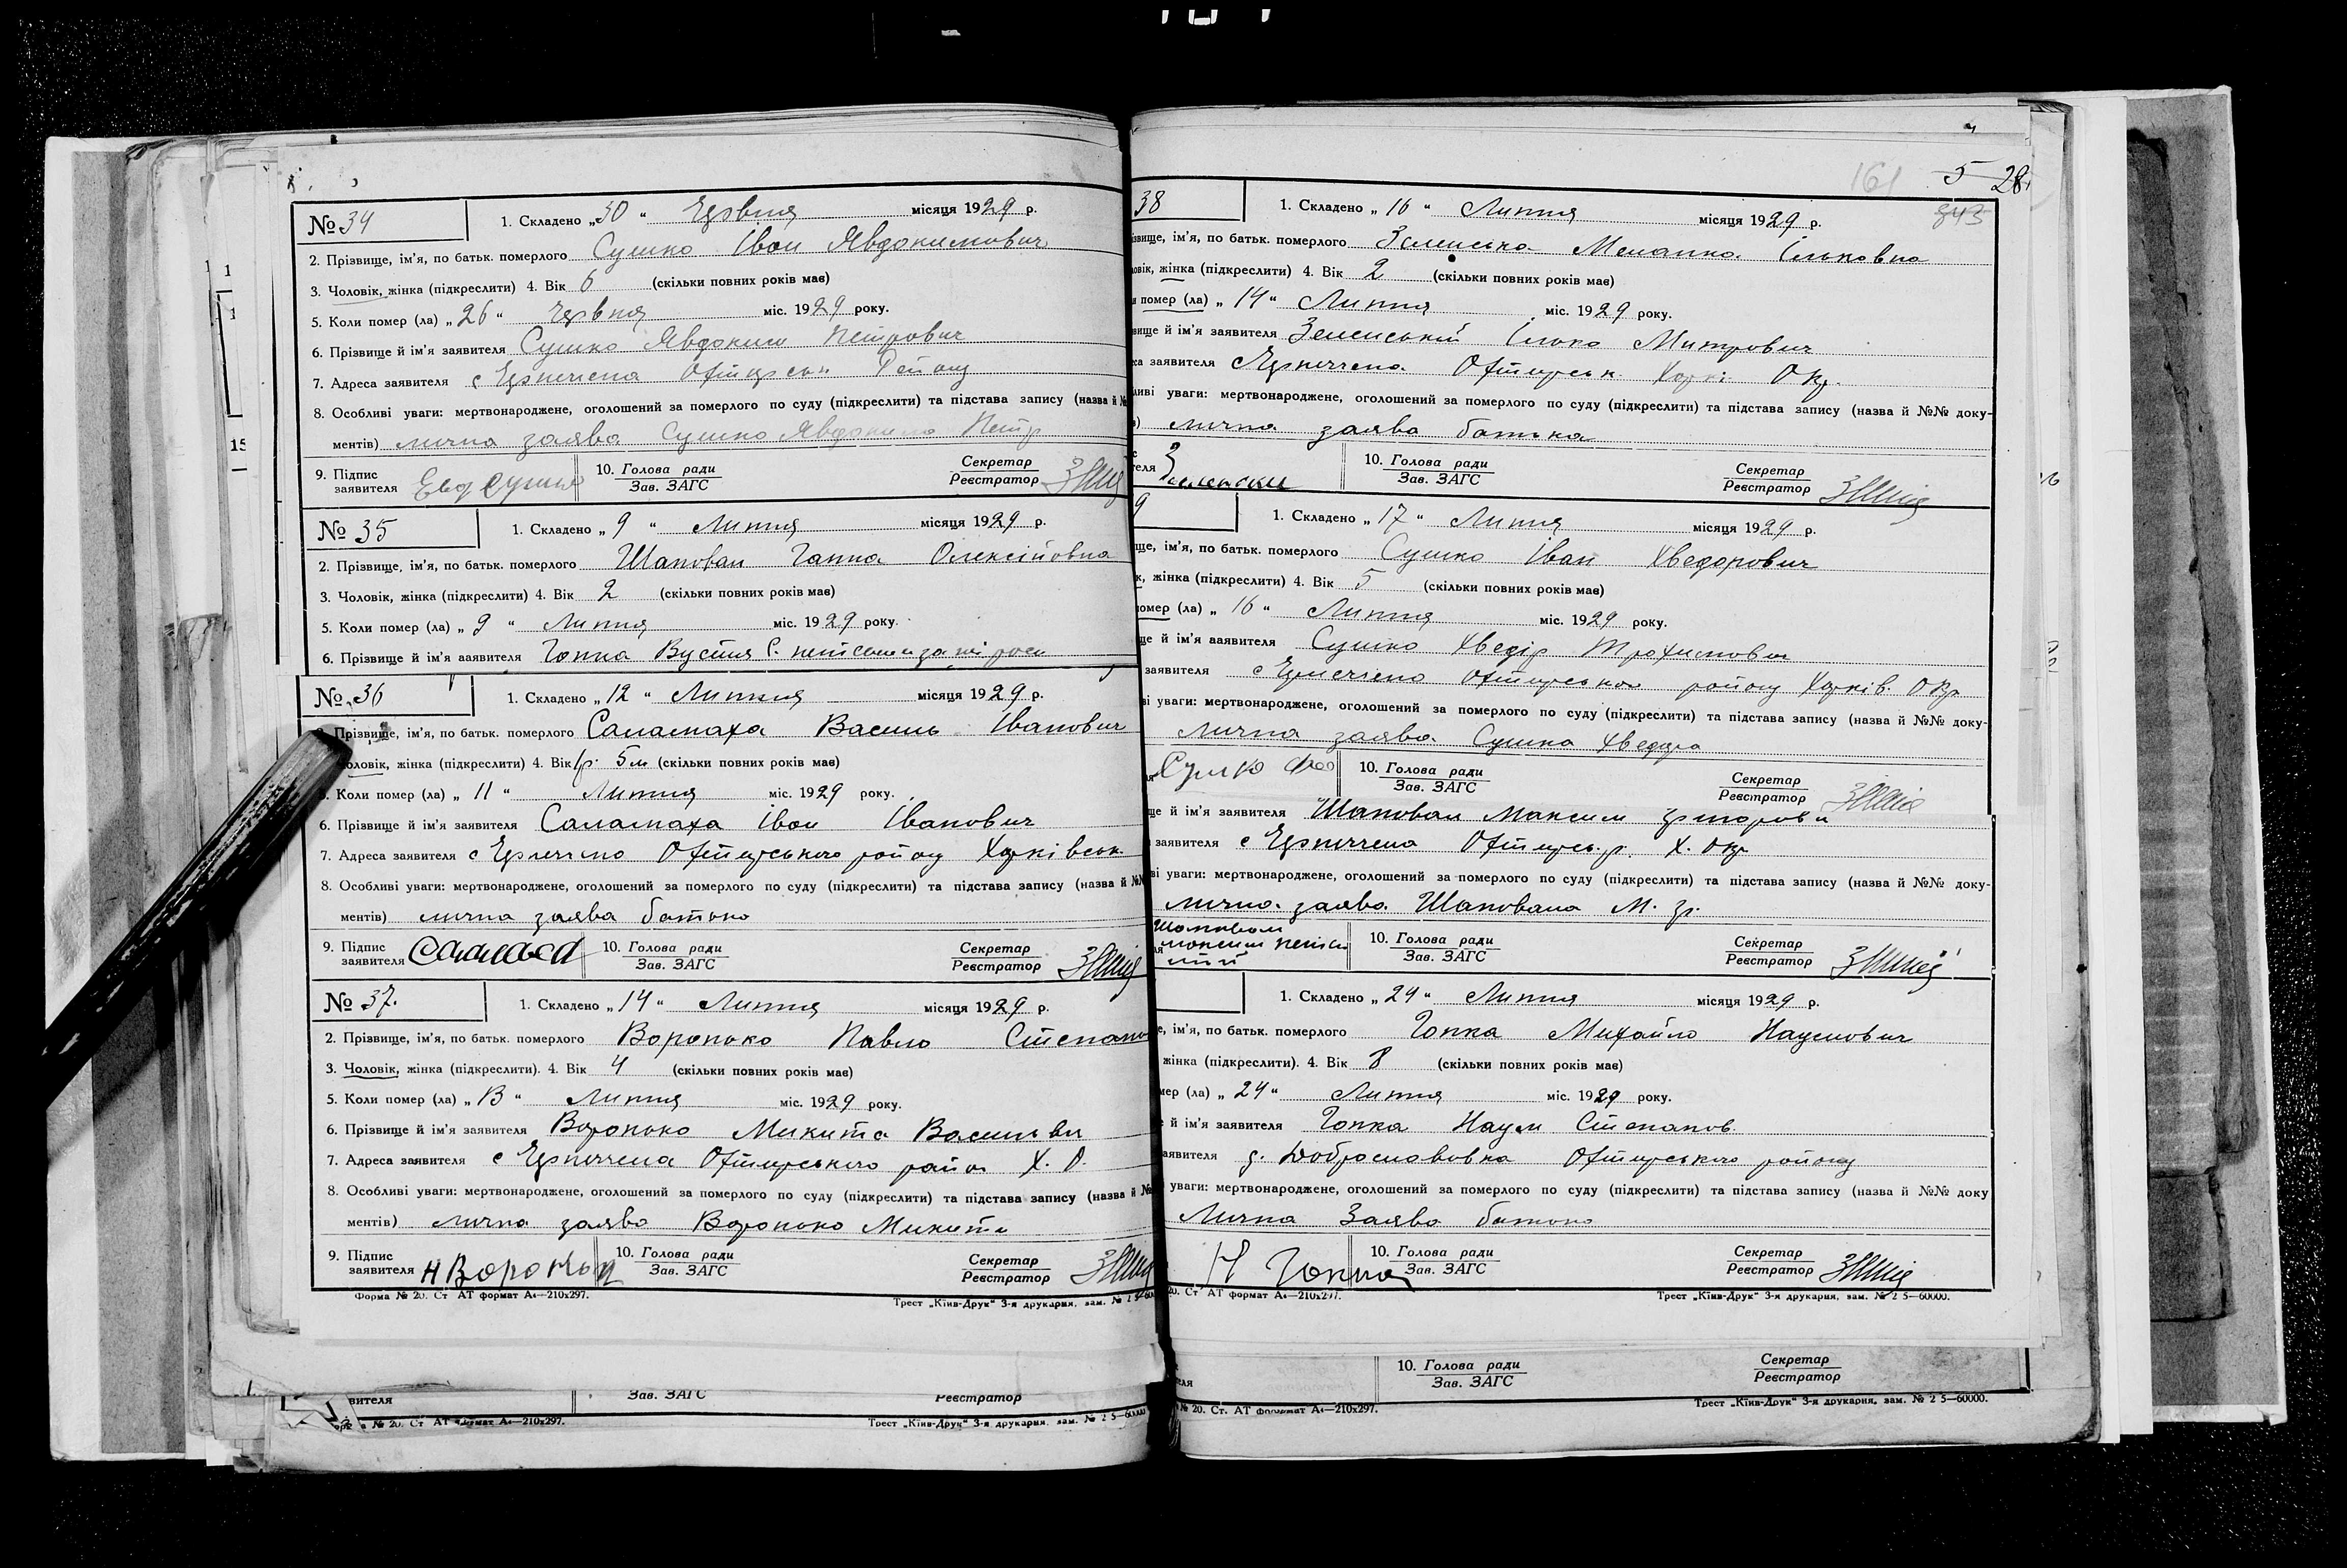 № 34 1. Складено „30“ Червня місяця 1929 р.
2. Прізвище, ім'я, по батьк. померлого Сушко Іван Явдокимович
3. Чоловік, жінка (підкреслити) 4. Вік 6 (скільки повних років має)
5. Коли помер (ла) „26“ Червня міс. 1929 року.
6. Прізвище й ім'я заявителя Сушко Явдоким Петрович
7. Адреса заявителя с
8. Особливі уваги: мертвонароджене, оголошений за померлого по суду (підкреслити) та підстава запису (назва й №
ментів) лична заява Сушко Явдокима Петр
9. Підпис заявителя Евд Сушко 10. Голова ради Зав. ЗАГС Секретар Реєстратор
№ 35 1. Складено „9“ Липня місяця 1929 р.
2. Прізвище, ім'я, по батьк. померлого Шаповал Ганна Олексіївна
3. Чоловік, жінка (підкреслити) 4. Вік 2 (скільки повних років має)
5. Коли помер (ла) „9“ Липня міс. 1929 року.
6. Прізвище й ім'я заявителя Гопка
№ 36 1. Складено „12“ Липня місяця 1929 р.
Прізвище, ім'я, по батьк. померлого Саламаха Василь Іванович
оловік, жінка (підкреслити) 4. Вік 1р. 5м (скільки повних років має)
. Коли помер (ла) „11“ Липня міс. 1929 року.
6. Прізвище й ім'я заявителя Саламаха Іван Іванович
7. Адреса заявителя с Охтирського району Харківськ
8. Особливі уваги: мертвонароджене, оголошений за померлого по суду (підкреслити) та підстава запису (назва й №№
ментів) лична заява батька
9. Підпис заявителя 10. Голова ради Зав. ЗАГС Секретар Реєстратор
№ 37. 1. Складено „14“ Липня місяця 1929 р.
2. Прізвище, ім'я, по батьк. померлого Воронько Павло Степано
3. Чоловік, жінка (підкреслити). 4. Вік 4 (скільки повних років має)
5. Коли помер (ла) „13“ Липня міс. 1929 року.
6. Прізвище й ім'я заявителя Воронько Микита
7. Адреса заявителя с Охтирського район Х. О.
8. Особливі уваги: мертвонароджене, оголошений за померлого по суду (підкреслити) та підстава запису (назва й №
ментів) лична заява Воронько Микити
9. Підпис заявителя 10. Голова ради Зав. ЗАГС Секретар Реєстратор
Форма № 20. Ст АТ формат А4—210x297. Трест „Київ-Друк“ 3-я друкарня, зам. №
вителя Зав. ЗАГС Реєстратор
№ 20. Ст АТ формат А4—210x297. Трест „Київ-Друк“ 3-я друкарня, зам. №
161 5 28
843
38 1. Складено „16“ Липня місяця 1929 р.
ізвище, ім'я, по батьк. померлого Зеленська Меланка Ільковна
овік, жінка (підкреслити) 4. Вік 2 (скільки повних років має)
помер (ла) „14“ Липня міс. 1929 року.
вище й ім'я заявителя Зеленський Ілько Митрович
са заявителя с Охтирськ. Харкі Окр.
ливі уваги: мертвонароджене, оголошений за померлого по суду (підкреслити) та підстава запису (назва й №№ доку-
) лична заява батька
теля Зеленски 10. Голова ради Зав. ЗАГС Секретар Реєстратор
9 1. Складено „17“ Липня місяця 1929 р.
ще, ім'я, по батьк. померлого Сушко Іван Хведорович
к, жінка (підкреслити) 4. Вік 5 (скільки повних років має)
помер (ла) „16“ Липня міс. 1929 року.
ще й ім'я заявителя Сушко Хведір Трохимович
заявителя с Охтирського району Харків. Окр
ві уваги: мертвонароджене, оголошений за померлого по суду (підкреслити) та підстава запису (назва й №№ доку-
лична заява Сушка Хведора
Сушко 10. Голова ради Зав. ЗАГС Секретар Реєстратор
ще й ім'я заявителя Шаповал Максим
заявителя с Х. окр
ві уваги: мертвонароджене, оголошений за померлого по суду (підкреслити) та підстава запису (назва й №№ доку-
лична заява Шаповала М. Гр.
Шаповал 10. Голова ради Зав. ЗАГС Секретар Реєстратор
1. Складено „24“ Липня місяця 1929 р.
е, ім'я, по батьк. померлого Гопка Михайло Наумович
жінка (підкреслити). 4. Вік 8 (скільки повних років має)
мер (ла) „24“ Липня міс. 1929 року.
й ім'я заявителя Гопка Наум Степанов.
аявителя Доброславовка Охтирського району
уваги: мертвонароджене, оголошений за померлого по суду (підкреслити) та підстава запису (назва й №№ доку
Лична Заява батька
Н Гопка 10. Голова ради Зав. ЗАГС Секретар Реєстратор
20. Ст АТ формат А4—210x297. Трест „Київ-Друк“ 3-я друкарня, зам. № 2 5—60000.
10. Голова ради Зав. ЗАГС Секретар Реєстратор
№ 20. Ст. АТ формат А4—210x297. Трест „Київ-Друк“ 3-я друкарня, зам. № 2 5—60000.